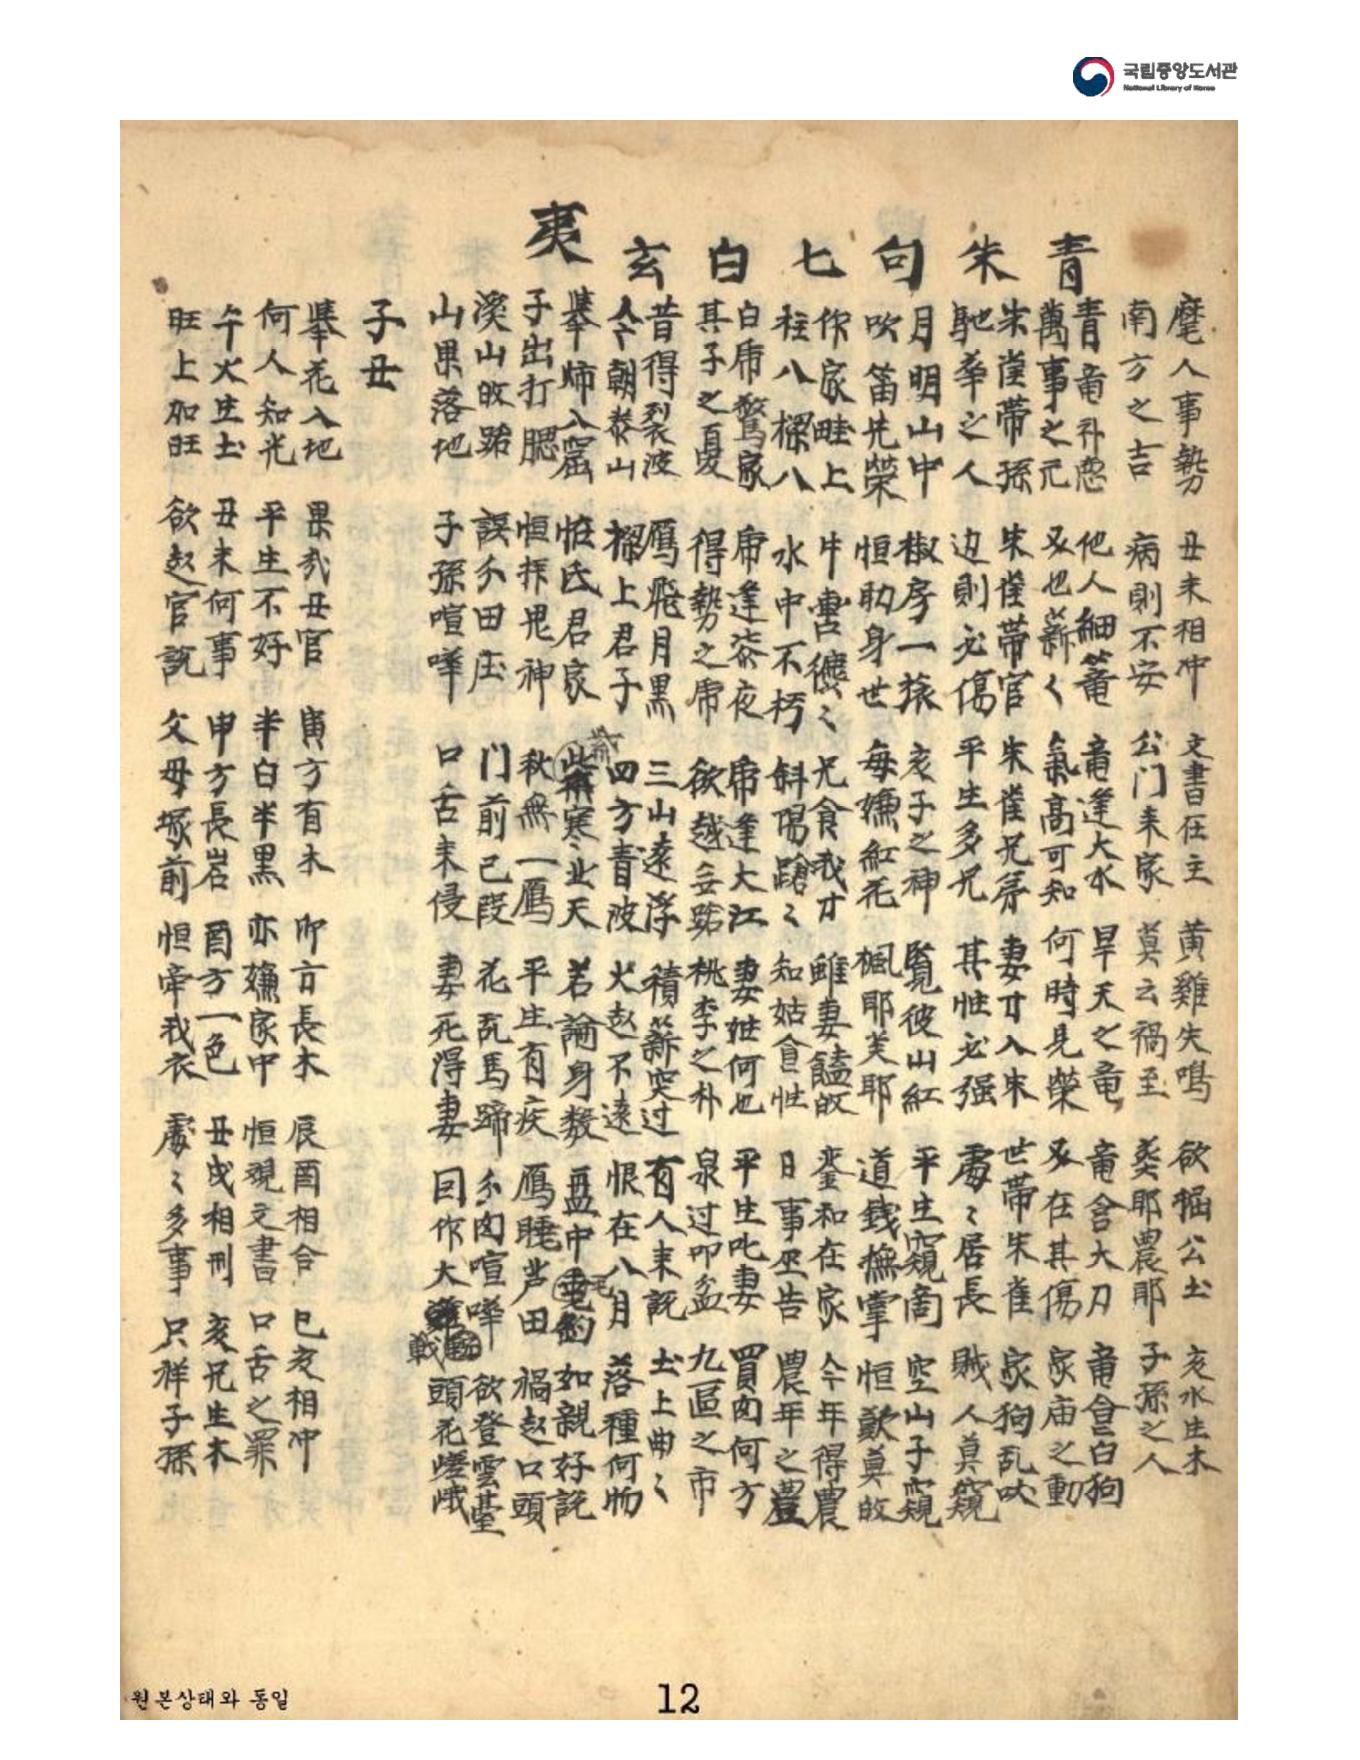 국립중앙도서관
National Library of Korea
青 朱 句 七 白 玄 夷
麾人事勢 丑未相冲 文書任主 黄雞失鳴 欲掘公土 亥水生木
南方之吉 病則不安 公门来家 莫云禍至 葬耶農耶 子孫之人
青竜 他人細篭 竜逢大水 旱天之竜 竜含大刀 竜食白狗
萬事之元 又也薪〻 氣高可知 何時見榮 又在其傷 家庙之動
朱雀帯孫 朱雀帯官 朱雀兄弟 妻才入朱 世帯朱雀 家狗乱吠
馳奔之人 边則必傷 平生多兄 其性必强 處〻居長 賊人莫窺
月明山中 椒房一猿 亥子之神 覧彼山紅 平生窺商 空山子窺
吹笛先榮 恒助身世 每嫌紅花 楓耶美耶 道銭撫掌 恒歎莫的
作家畦上 牛害〻 兄食我才 雖妻饐的 和在家 今年得農
柱八樑八 水中不朽 斜陽蹌〻 知姑貪性 日事巫告 農年之豊
白帍驚家 帍逢深夜 帍逢大江 妻姓何也 平生叱妻 買肉何方
其子之 得勢之帍 欲越無路 桃李之朴 泉过叩盆 九區之市
昔得裂波 鴈飛月黒 三山遠浮 積薪突过 有人来訧 土上曲〻
今朝泰山 樑上君子 四方青波 火起不遠 恨在八月 落種何物
擧姉入窟 恠氏君家 此寒北天 若論身数 盃中 如親好訧
子出打腮 恒拝鬼神 秋無一鴈 平生有疾 鴈睡芦田 禍起口頭
溪山改路 誤分田庄 门前已段 花乱馬蹄 分肉喧嘩 欲登雲基
山果落地 子孫喧嘩 口舌来侵 妻死淂妻 回作大戦 頭花嵯峨
子丑
擧花入地 果哉丑官 寅方有木 卯方長木 辰酉相合 巳亥相冲
何人知光 平生不好 半白半黒 亦嫌家中 恒視文書 口舌之罪
午火生土 丑未何事 申方長岩 酉方一色 丑戌相刑 亥兄生木
旺上加旺 欲起官訧 父母塚前 恒啼我衣 處〻多事 只祥子孫
원본상태와 동일
12